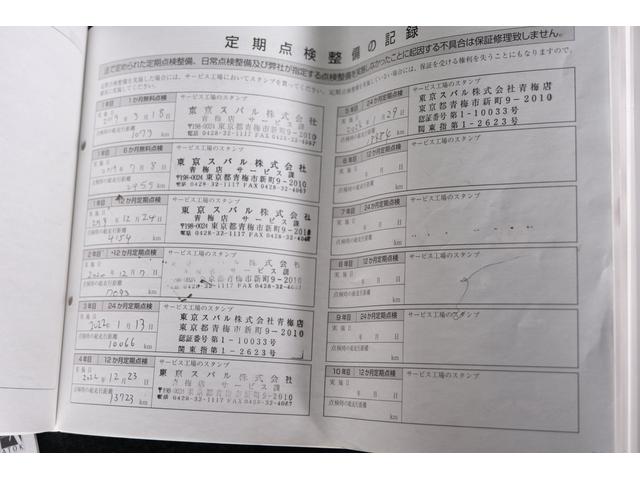 定期点検整備の記録
法で定められた定期点検整備、日常点検整備及び弊社が指定する点検整備を実施しなかったことに起因する不具合は保証修理致しません。
定期点検整備を実施した場合には、サービス工場においてスタンプを貰ってください。
1か月無料点検
サービス工場のスタンプ
実施日
3月18日
1073 km
東京スバル株式会社
青梅店 サービス課
〒198-0024 東京都青梅市新町9-2010
6か月無料点検
サービス工場のスタンプ
実施日
7月8日
km
東京スバル株式会社
青梅店 サービス課
〒198-0024 東京都青梅市新町9-2010
電話 0428-32-1117 FAX 0428-32-4067
1年目 12か月定期点検
サービス工場のスタンプ
実施日
12月24日
点検時の総走行距離
4154 km
東京スバル株式会社
青梅店 サービス課
〒198-0024 東京都青梅市新町9-2010
電話 0428-32-1117 FAX 0428-32-4067
2年目 12か月定期点検
サービス工場のスタンプ
実施日
12月
点検時の総走行距離
7093 km
3年目 24か月定期点検
サービス工場のスタンプ
実施日
2022年1月13日
点検時の総走行距離
10066 km
東京スバル株式会社青梅店
東京都青梅市新町9-2010
認証番号 第1-10033号
関東指第1-2623号
4年目 12か月定期点検
サービス工場のスタンプ
実施日
2022年12月23日
点検時の総走行距離
13723 km
東京スバル株式会社
青梅店 サービス課
〒198-0024 東京都青梅市新町9-2010
電話 0428-32-1117 FAX 0428-32-4067
5年目 24か月定期点検
サービス工場のスタンプ
実施日
1月29日
km
東京スバル株式会社青梅店
東京都青梅市新町9-2010
認証番号 第1-10033号
関東指第1-2623号
サービス工場のスタンプ
点検時の総走行距離
km
7年目 24か月定期点検
サービス工場のスタンプ
実施日
年 月 日
点検時の総走行距離
km
8年目 12か月定期点検
サービス工場のスタンプ
実施日
年 月 日
点検時の総走行距離
km
9年目 24か月定期点検
サービス工場のスタンプ
実施日
年 月 日
点検時の総走行距離
km
10年目 12か月定期点検
サービス工場のスタンプ
実施日
年 月 日
点検時の総走行距離
km